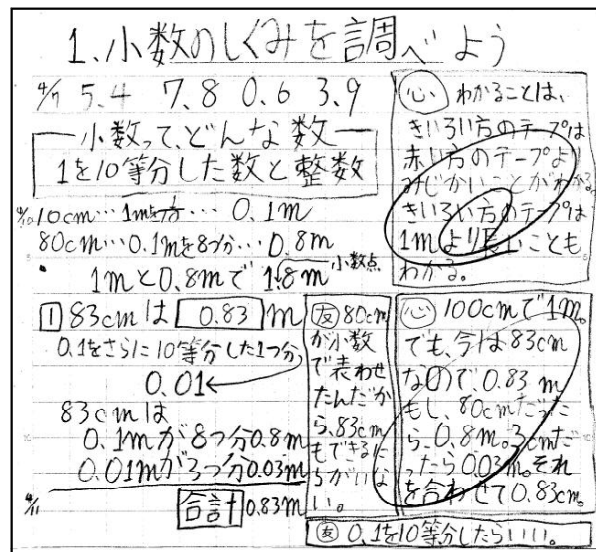 1.小数のしくみを調べよう
4/7 5.4 7.8 0.6 3.9
小数って、どんな数
1を10等分した数と整数
4/10 10cm…1mを方…0.1m
80cm…0.1mを8つ分…0.8m
1mと0.8mで 1.8m 小数点
心 わかることは、
きいろい方のテープは
赤い方のテープより
みじかいことがわかる。
きいろい方のテープは
1mより長いことも
わかる。
1 83cmは 0.83 m
0.1をさらに10等分した1つ分
0.01
83cmは
0.1mが8つ分0.8m
0.01mが3つ分0.03m
4/11 合計 0.83m
友 80cm
が小数
で表わせ
たんだか
ら、83cm
もできるに
ちがいな
い。
心 100cmで1m。
でも、今は83cm
なので、0.83m
もし、80cmだった
ら、0.8m。3cmだ
ったら0.03m。それ
を合わせて0.83cm。
友 0.1を10等分したらいい。